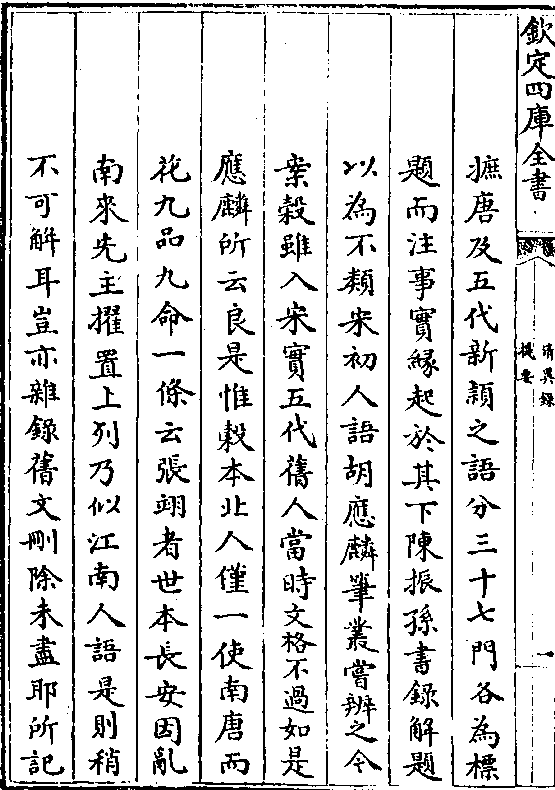 欽定四庫全書
清異録
提要
一
摭唐及五代新頴之語分三十七門各為標
題而注事實縁起於其下陳振孫書録解題
以為不類宋初人語胡應麟筆叢嘗辨之今
案榖雖入宋實五代舊人當時文格不過如是
應麟所云良是惟榖本北人僅一使南唐而
花九品九命一條云張翊者世本長安因亂
南來先主擢置上列乃似江南人語是則稍
不可解耳豈亦雜録舊文刪除未盡耶所記